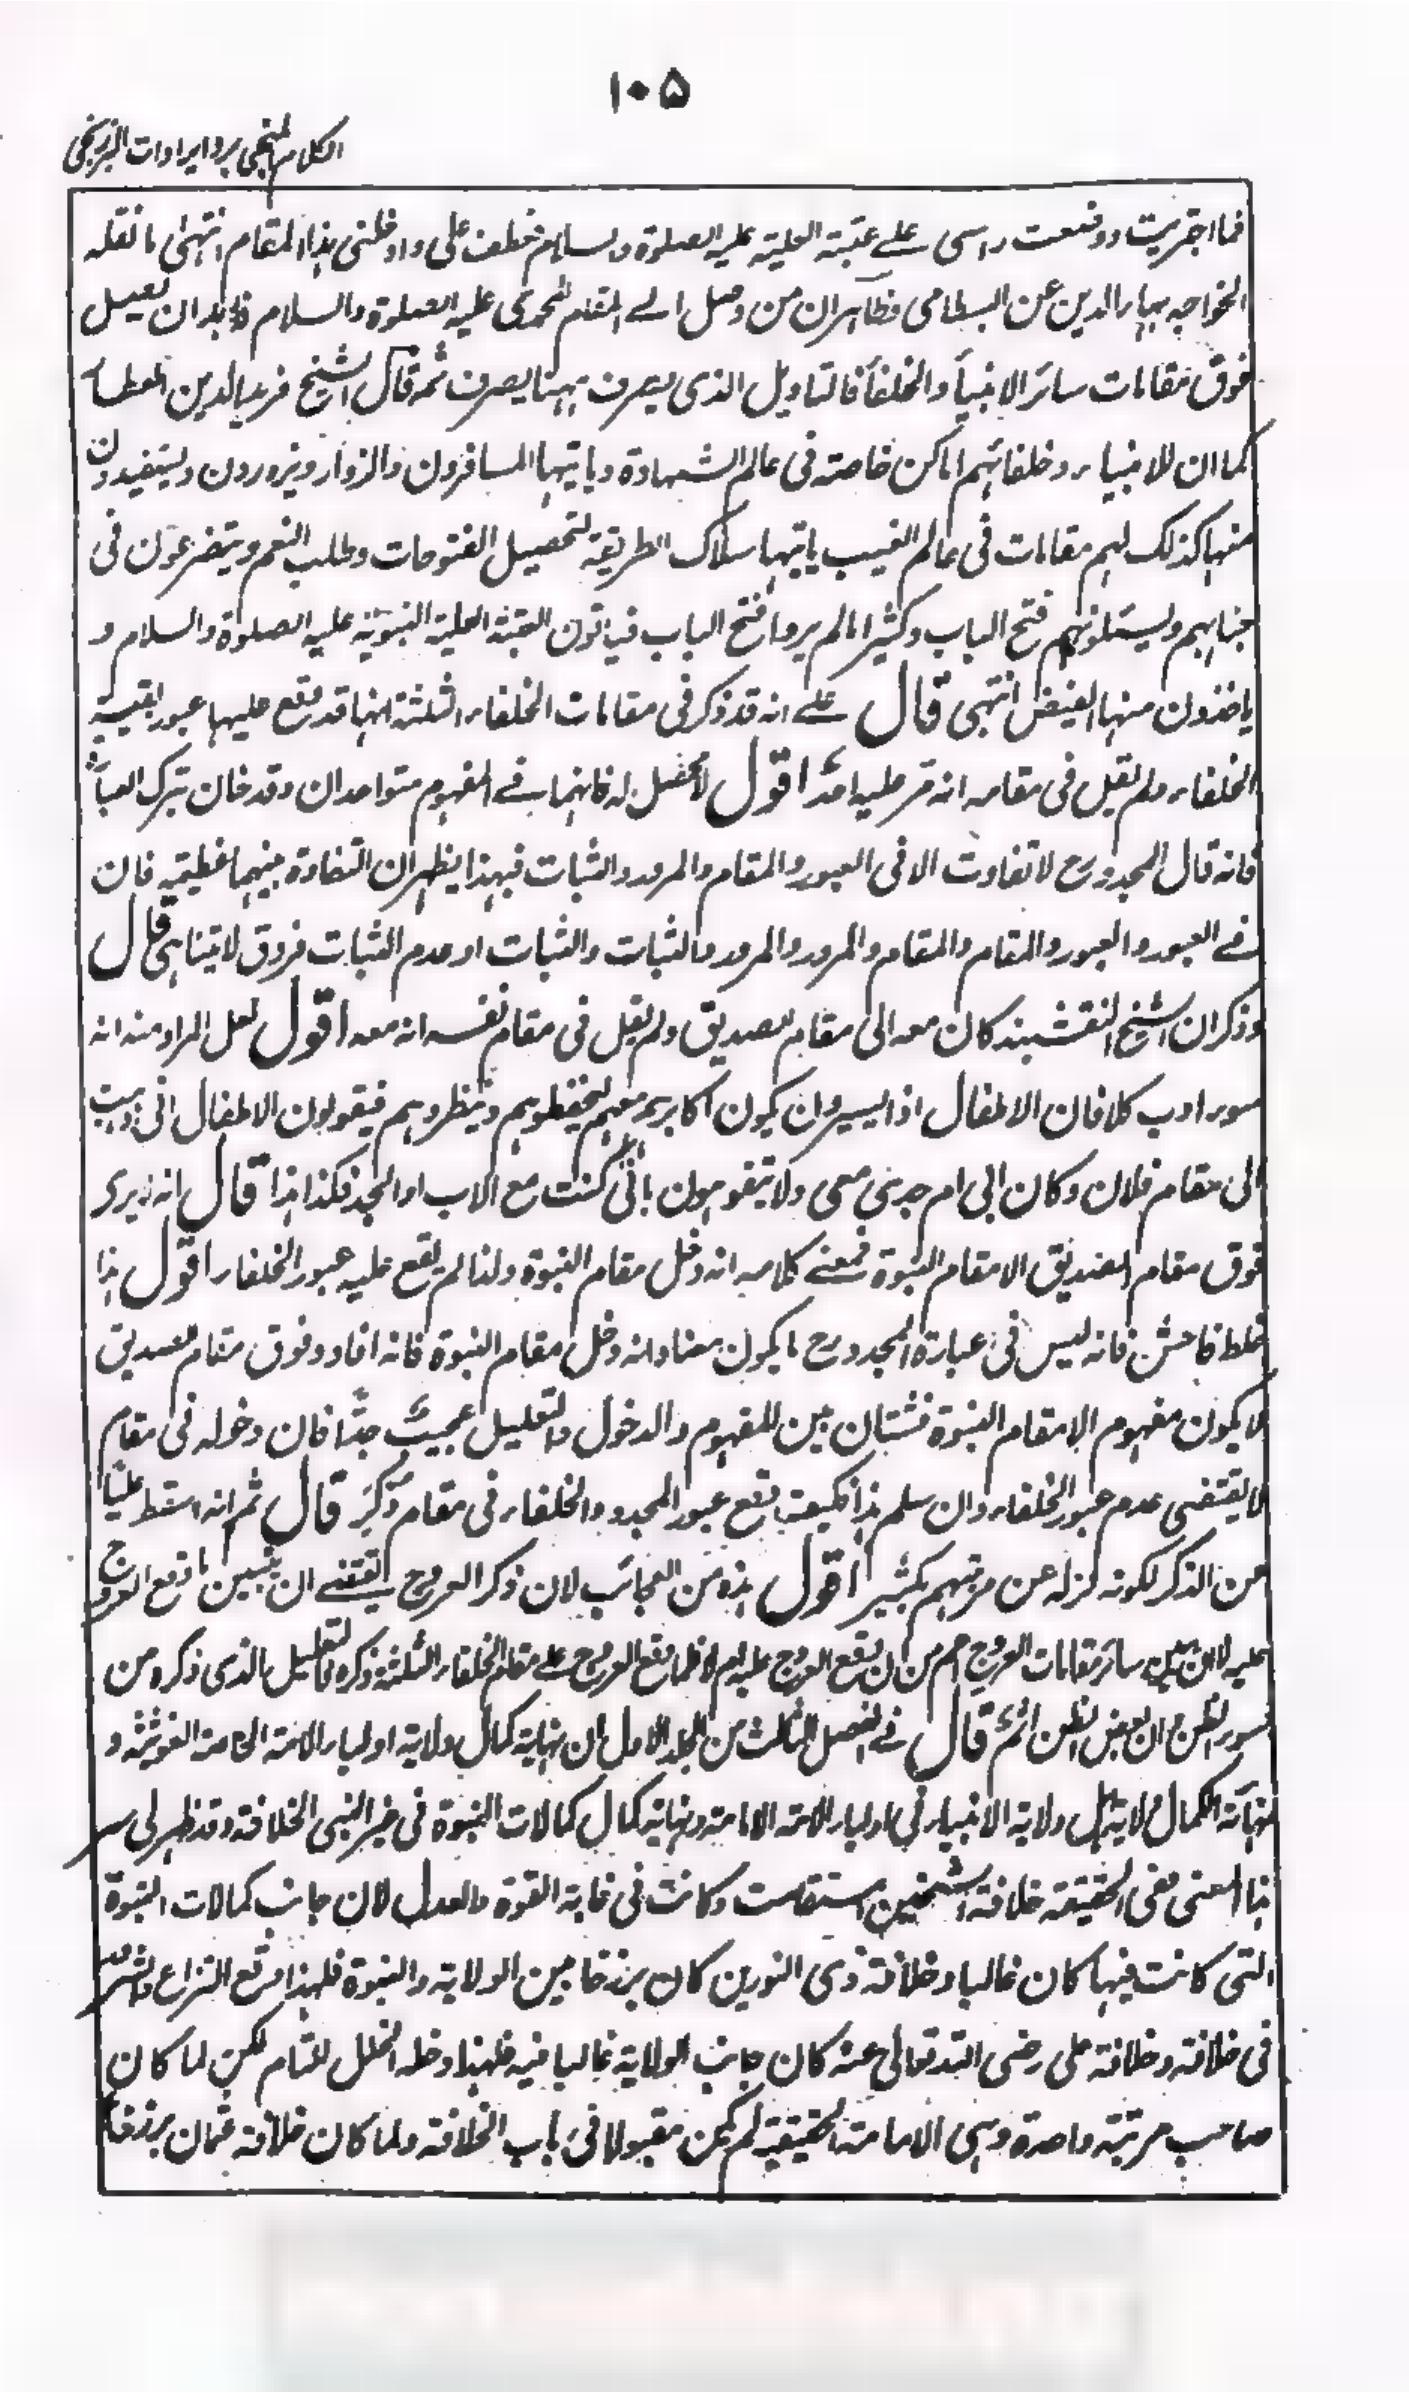 ١٠٥
الكلام المنجى برد ايرادات البرزنجى
فما اجتريت ووضعت راسى على عتبة العلية عليه الصلوة والسلام فعطف على وادخلنى هذا المقام انتهى ما نقله
الخواجه بهاء الدين عن البسطامى فظاهر ان من وصل الى المقام المحمدى عليه الصلوة والسلام فلابد ان يصل
فوق مقامات سائر الانبياء والخلفاء فالتاويل الذى يصرف ههنا يصرف ثمه قال الشيخ فريد الدين العطار
كما ان للانبياء وخلفائهم اماكن خاصة فى عالم الشهادة وياتيها المسافرون والزوار ويزورون ويستفيدون
منها كذلك لهم مقامات فى عالم الغيب ياتيها سلاك الطريقة لتحصيل الفتوحات وطلب النعم ويتضرعون فى
جنابهم ويسئلونهم فتح الباب وكثيرا ما لم يروا فتح الباب فياتون العتبة العلية النبوية عليه الصلوة والسلام و
ياخذون منها الفيض انتهى قال على انه قد ذكر فى مقامات الخلفاء الثلثة انها قد وقع عليها عبور بقية
الخلفاء ولم يقل فى مقامه انه مر عليه احد اقول لا محصل له فانهما فى المفهوم متواحدان وقد خان بترك العبارة
فانه قال المجدد رح لا تفاوت الا فى العبور والمقام والمرور والثبات فبهذا يظهر ان التفاوة بينهما عظيمة فان
فى العبور والعبور والمقام والمقام والمرور والمرور والثبات والثبات او عدم الثبات فروق لا يتناهى قال
وذكر ان الشيخ النقشبند كان معه الى مقام الصديق ولم يقل فى مقام نفسه انه معه اقول لعل المراد منه انه
سوء ادب كلا فان الاطفال اذا يسيرون يكون اكابرهم معهم ليحفظوهم وينظروهم فيقولون الاطفال انى ذهبت
الى مقام فلان وكان ابى ام جدى معى ولا يتفوهون بانى كنت مع الاب او الجد فكذا هذا قال انه لا يرى
فوق مقام الصديق الا مقام النبوة فمعنى كلامه انه دخل مقام النبوة ولذا لم يقع عليه عبور الخلفاء اقول هذا
غلط فاحش فانه ليس فى عبارة المجدد رح ما يكون معناه انه دخل مقام النبوة فانه افاد وفوق مقام الصديق
لا يكون مفهوم الا مقام النبوة فشتان بين المفهوم والدخول والتعليل عجيب جدا فان دخوله فى مقام
لا يقتضى عدم عبور الخلفاء وان سلم هذا فكيف وقع عبور المجدد والخلفاء فى مقام ذكر قال ثم انه اسقط عليا
عن الذكر لكونه نزله عن مرتبهم بكثير اقول هذه من العجائب لان ذكر العروج يقتضى ان يتبين ما وقع العروج
عليه لا ان يبين سائر مقامات العروج اهم من ان يقع العروج عليه ام لا فلما وقع العروج على مقام الخلفاء الثلثة ذكره فالتعليل الذى ذكره من
سوء الظن وان بعض الظن اثم قال فى الفصل الثالث من الجلد الاول ان نهاية كمال ولاية اولياء الامة الخاصة الغوثية و
نهاية الكمال ولاية ولاية الانبياء فى اولياء الامة الامامة ونهاية كمال كمالات النبوة فى غير النبى الخلافة وقد ظهر لى سر
هذا المعنى ففى الحقيقة خلافة الشيخين استقامت وكانت فى غاية القوة والعدل لان جانب كمالات النبوة
التى كانت فيها كان غالبا وخلافة ذى النورين كان برزخا بين الولاية والنبوة فلهذا وقع النزاع والشر
فى خلافته وخلافة على رضى الله تعالى عنه كان جانب الولاية غالبا فيه فلهذا دخله الخلل التام لكن لما كان
صاحب مرتبة واحدة وهى الامامة الحقيقية لم يكن مقبولا فى باب الخلافة ولما كان خلافة عثمان برزخا